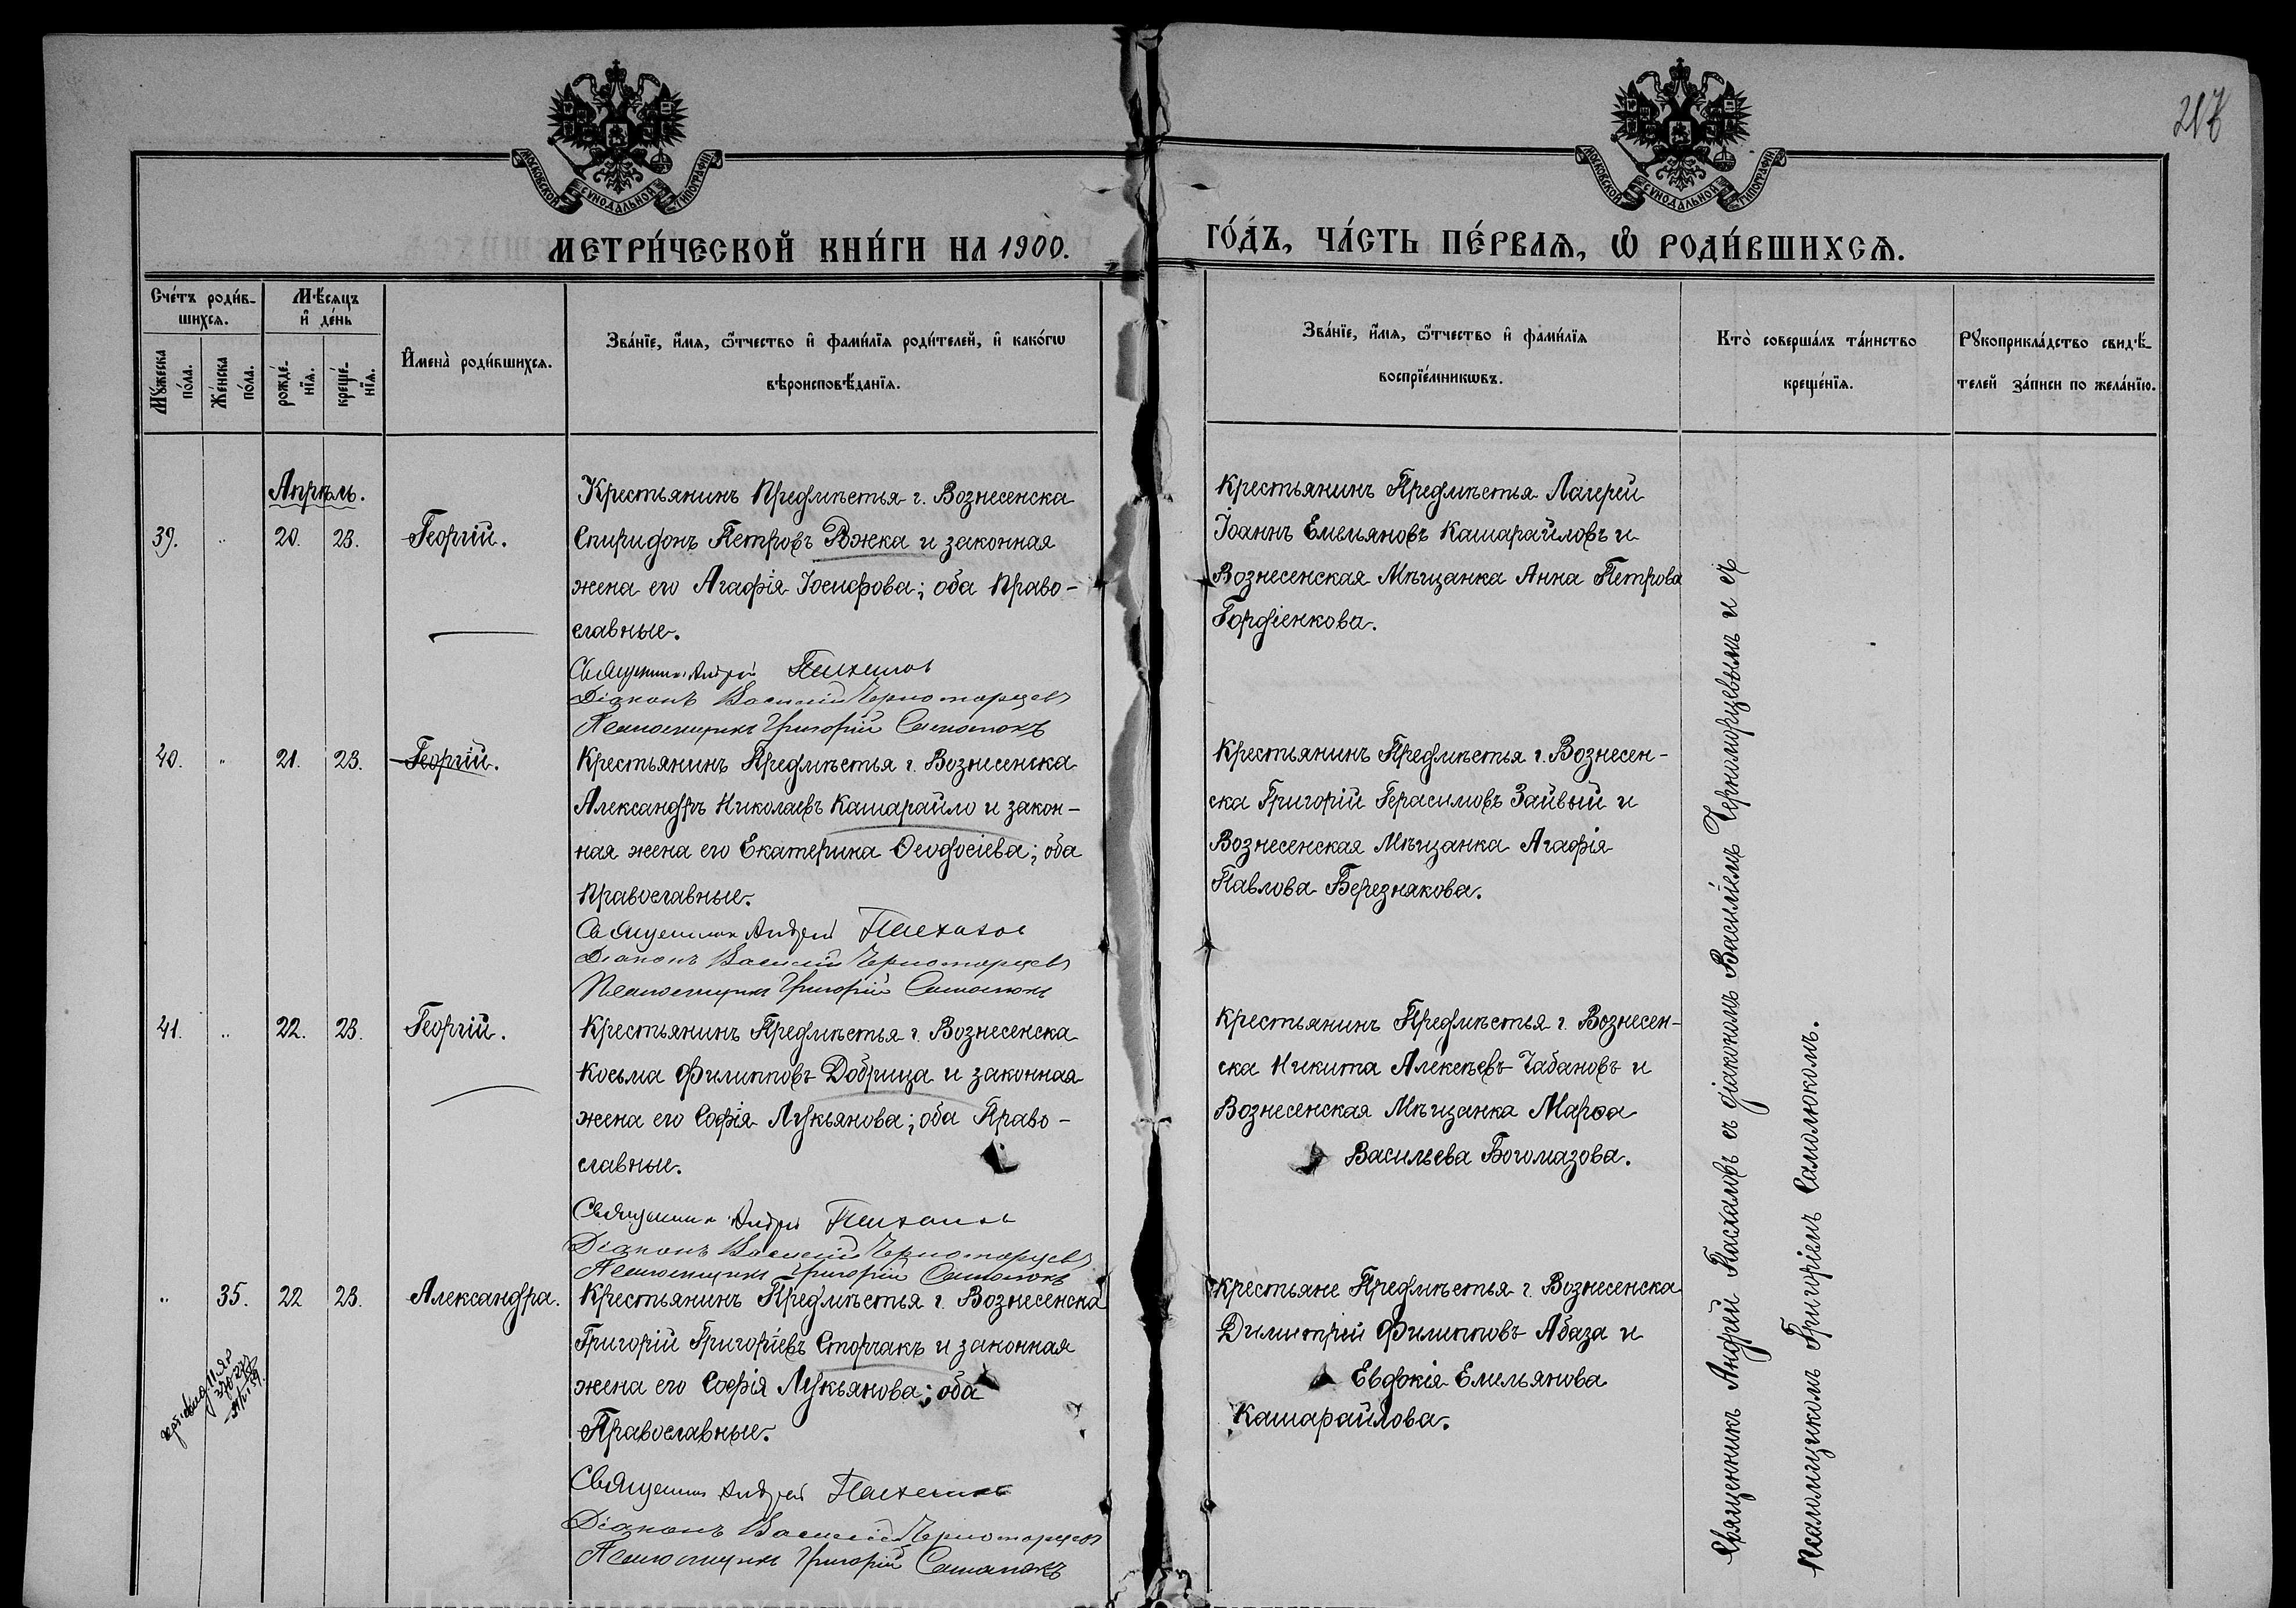 217
МОСКОВСКОЙ СУНОДАЛЬНОЙ ТИПОГРАФІИ
МОСКОВСКОЙ СУНОДАЛЬНОЙ ТИПОГРАФІИ
МЕТРИ́ЧЕСКОЙ КНИ́ГИ НА 1900.
ГО́ДЪ, ЧА́СТЬ ПЕ́РВАѦ, Ѡ҆ РОДИ́ВШИХСѦ.
Сче́тъ роди́в-
шихсѧ.
Мꙋ́жеска
по́ла.
Же́нска
по́ла.
Мѣ́сѧцъ
и҆ де́нь
рожде́-
нїѧ.
креще́-
нїѧ.
И҆мена̀ роди́вшихсѧ.
Зва́нїе, и҆́мѧ, ѻ҆́тчество и҆ фами́лїѧ роди́телей, и҆ како́гѡ
вѣроисповѣ́данїѧ.
Зва́нїе, и҆́мѧ, ѻ҆́тчество и҆ фами́лїѧ
воспрїе́мникѡвъ.
Кто̀ соверша́лъ та́инство
креще́нїѧ.
Рꙋкоприкла́дство свидѣ́-
телей за́писи по жела́нїю.
Апрѣль.
39. „ 20. 23. Георгій.
Крестьянинъ Предмѣстья г. Вознесенска
Спиридонъ Петровъ Рожка и законная
жена его Агафія Іосифова; оба право-
славные.
Священникъ Андрей Пасхаловъ
Діаконъ Василій Черноморцевъ
Псаломщикъ Григорій Самолюкъ
Крестьянинъ Предмѣстья Лагерей
Іоаннъ Емельяновъ Кашарайловъ и
Вознесенская Мѣщанка Анна Петрова
Гордіенкова.
40. „ 21. 23. Георгій.
Крестьянинъ Предмѣстья г. Вознесенска
Александръ Николаевъ Кашарайло и закон-
ная жена его Екатерина Ѳеодосіева; оба
православные.
Священник Андрей Пасхалов
Діаконъ Василій Черноморцевъ
Псаломщикъ Григорій Самолюкъ
Крестьянинъ Предмѣстья г. Вознесен-
ска Григорій Герасимовъ Зайвый и
Вознесенская Мѣщанка Агафія
Павлова Березнякова.
41. „ 22. 23. Георгій.
Крестьянинъ Предмѣстья г. Вознесенска
Косьма Филипповъ Добрица и законная
жена его Софія Лукьянова; оба Право-
славные.
Священник Андрей Пасхаловъ
Діаконъ Василій Черноморцевъ
Псаломщикъ Григорій Самолюкъ
Крестьянинъ Предмѣстья г. Вознесен-
ска Никита Алексѣевъ Чабановъ и
Вознесенская Мѣщанка Марѳа
Васильева Богомазова.
„ 35. 22 23. Александра.
Крестьянинъ Предмѣстья г. Вознесенска
Григорій Григоріевъ Сторчакъ и законная
жена его Софія Лукьянова; оба
Православные.
Священник Андрей Пасхаловъ
Діаконъ Василій Черноморцевъ
Псаломщикъ Григорій Самолюкъ
Крестьяне Предмѣстья г. Вознесенска
Димитрій Филипповъ Абаза и
Евдокія Емельянова
Кашарайлова.
Священникъ Андрей Пасхаловъ съ діакономъ Василіемъ Черноморцевымъ и съ
Псаломщикомъ Григоріемъ Самолюкомъ.